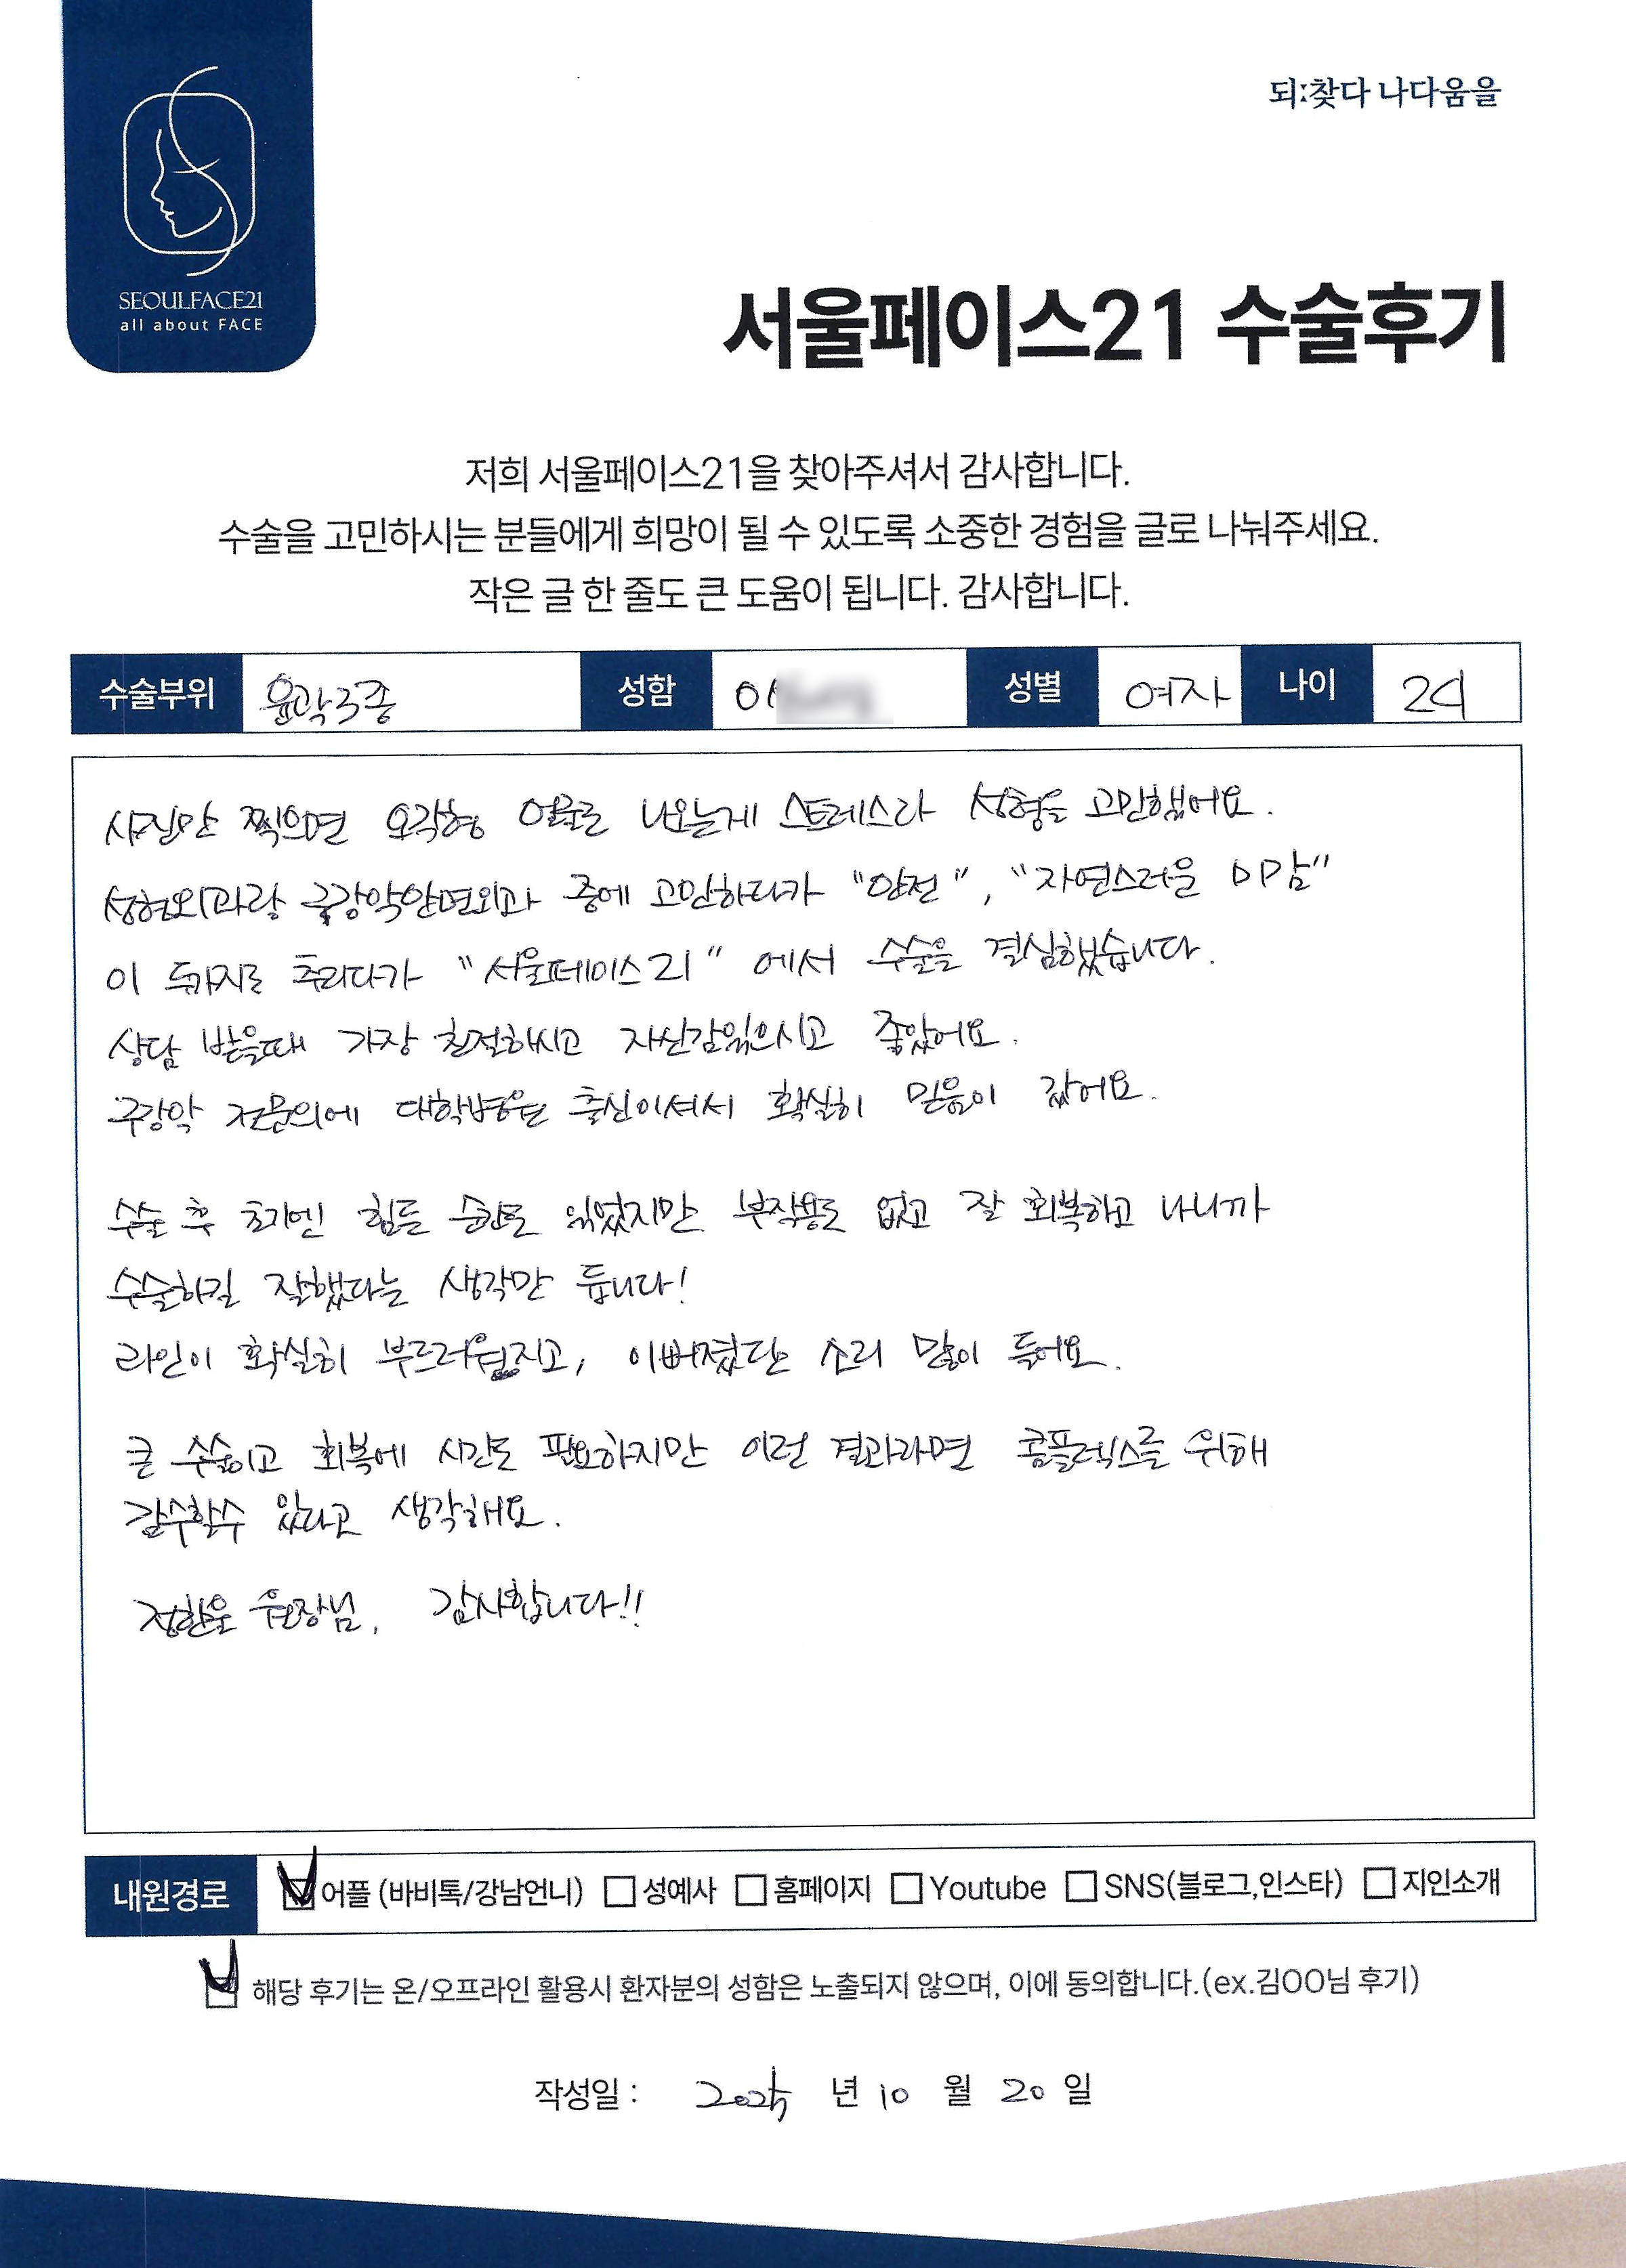 되:찾다 나다움을
SEOULFACE21
all about FACE
서울페이스21 수술후기
저희 서울페이스21을 찾아주셔서 감사합니다.
수술을 고민하시는 분들에게 희망이 될 수 있도록 소중한 경험을 글로 나눠주세요.
작은 글 한 줄도 큰 도움이 됩니다. 감사합니다.
수술부위 윤곽3종 성함 이 성별 여자 나이 24
사진만 찍으면 오각형 얼굴로 나오는게 스트레스라 성형을 고민했어요.
성형외과랑 구강악안면외과 중에 고민하다가 "안전", "자연스러운 미감"
이 두가지로 추리다가 "서울페이스21" 에서 수술을 결심했습니다.
상담 받을때 가장 친절하시고 자신감있으시고 좋았어요.
구강악 전문의에 대학병원 출신이셔서 확실히 믿음이 갔어요.
수술 후 초기엔 힘든 순간도 있었지만 부작용도 없고 잘 회복하고 나니까
수술하길 잘했다는 생각만 듭니다!
라인이 확실히 부드러워지고, 이뻐졌단 소리 많이 들어요.
큰 수술이고 회복에 시간도 필요하지만 이런 결과라면 콤플렉스를 위해
감수할수 있다고 생각해요.
정한울 원장님, 감사합니다!!
내원경로 어플 (바비톡/강남언니) 성예사 홈페이지 Youtube SNS(블로그,인스타) 지인소개
해당 후기는 온/오프라인 활용시 환자분의 성함은 노출되지 않으며, 이에 동의합니다.(ex.김OO님 후기)
작성일 : 2025 년 10 월 20 일